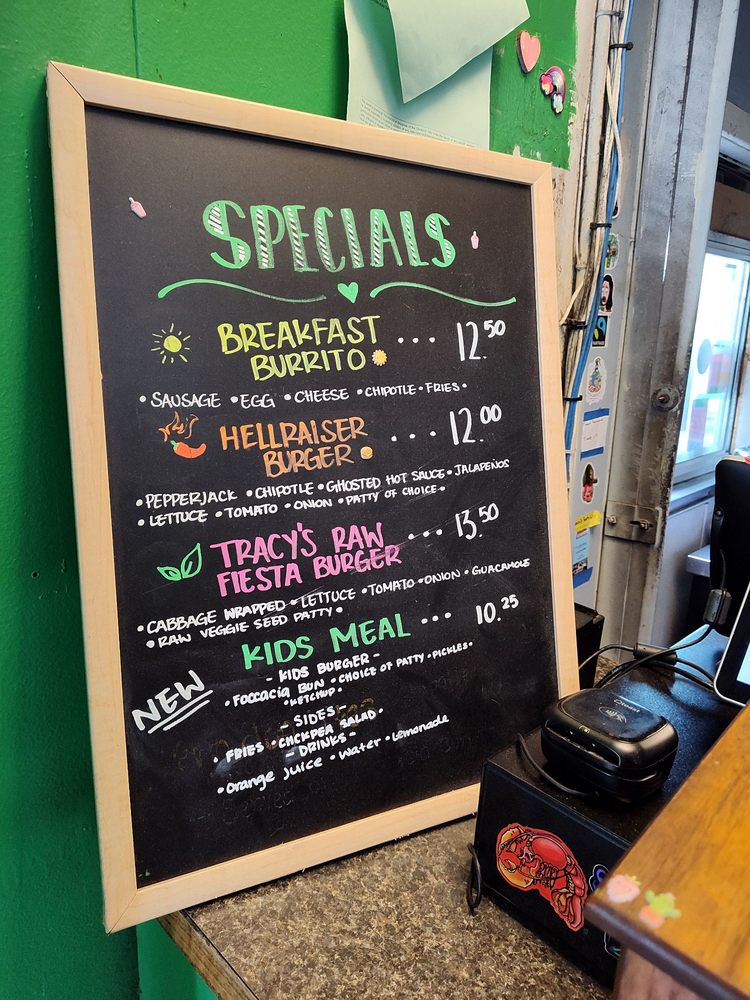 SPECIALS
BREAKFAST
BURRITO ... 12.50
• SAUSAGE • EGG • CHEESE • CHIPOTLE • FRIES •
HELLRAISER
BURGER ... 12.00
• PEPPERJACK • CHIPOTLE • GHOSTED HOT SAUCE • JALAPEÑOS
• LETTUCE • TOMATO • ONION • PATTY OF CHOICE •
TRACY'S RAW
FIESTA BURGER ... 13.50
• CABBAGE WRAPPED • LETTUCE • TOMATO • ONION • GUACAMOLE
• RAW VEGGIE SEED PATTY •
KIDS MEAL ... 10.25
NEW
- KIDS BURGER -
• FOCCACIA BUN • CHOICE OF PATTY • PICKLES •
• KETCHUP •
- SIDES -
• FRIES • CHCKPEA SALAD •
- DRINKS -
• Orange juice • Water • Lemonade